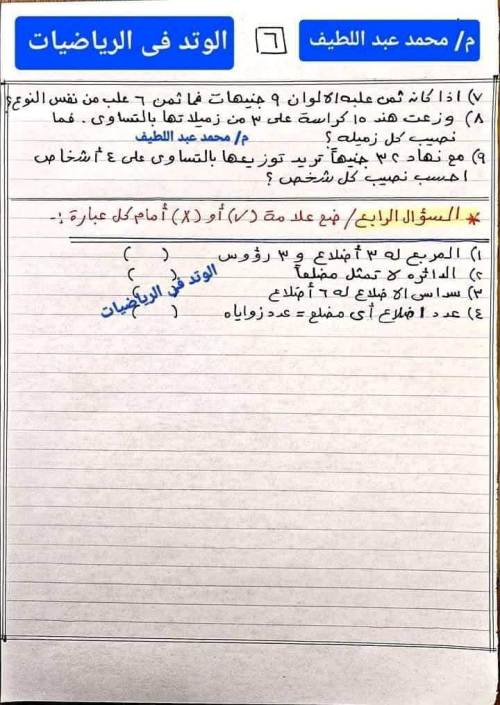 م/ محمد عبد اللطيف
٦
الوتد فى الرياضيات
٧) اذا كانه ثمن علبه الالوان ٩ جنيهات فما ثمن ٦ علب من نفس النوع؟
٨) وزعت هند ١٥ كراسة على ٣ من زميلاتها بالتساوى . فما
نصيب كل زميله ؟
م/ محمد عبد اللطيف
٩) مع نهاد ٣٢ جنيهاً تريد توزيعها بالتساوى على ٤ أشخاص
احسب نصيب كل شخص ؟
* السؤال الرابع / ضع علامة (√) أو (X) أمام كل عبارة :-
١) المربع له ٣ أضلاع و ٣ رؤوس ( )
٢) الدائره لا تمثل مضلعاً ( )
٣) سداسى الاضلاع له ٦ أضلاع ( )
٤) عدد اضلاع أى مضلع = عدد زواياه ( )
الوتد فى الرياضيات